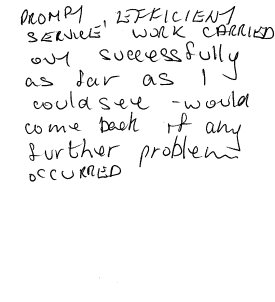 PROMPT, EFFICIENT
SERVICE, WORK CARRIED
out successfully
as far as I
could see - would
come back if any
further problem
OCCURRED